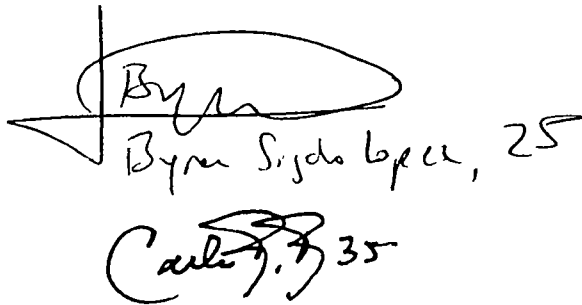 Byron
Byron Sigcho Lopez, 25
Carlos R. R 35